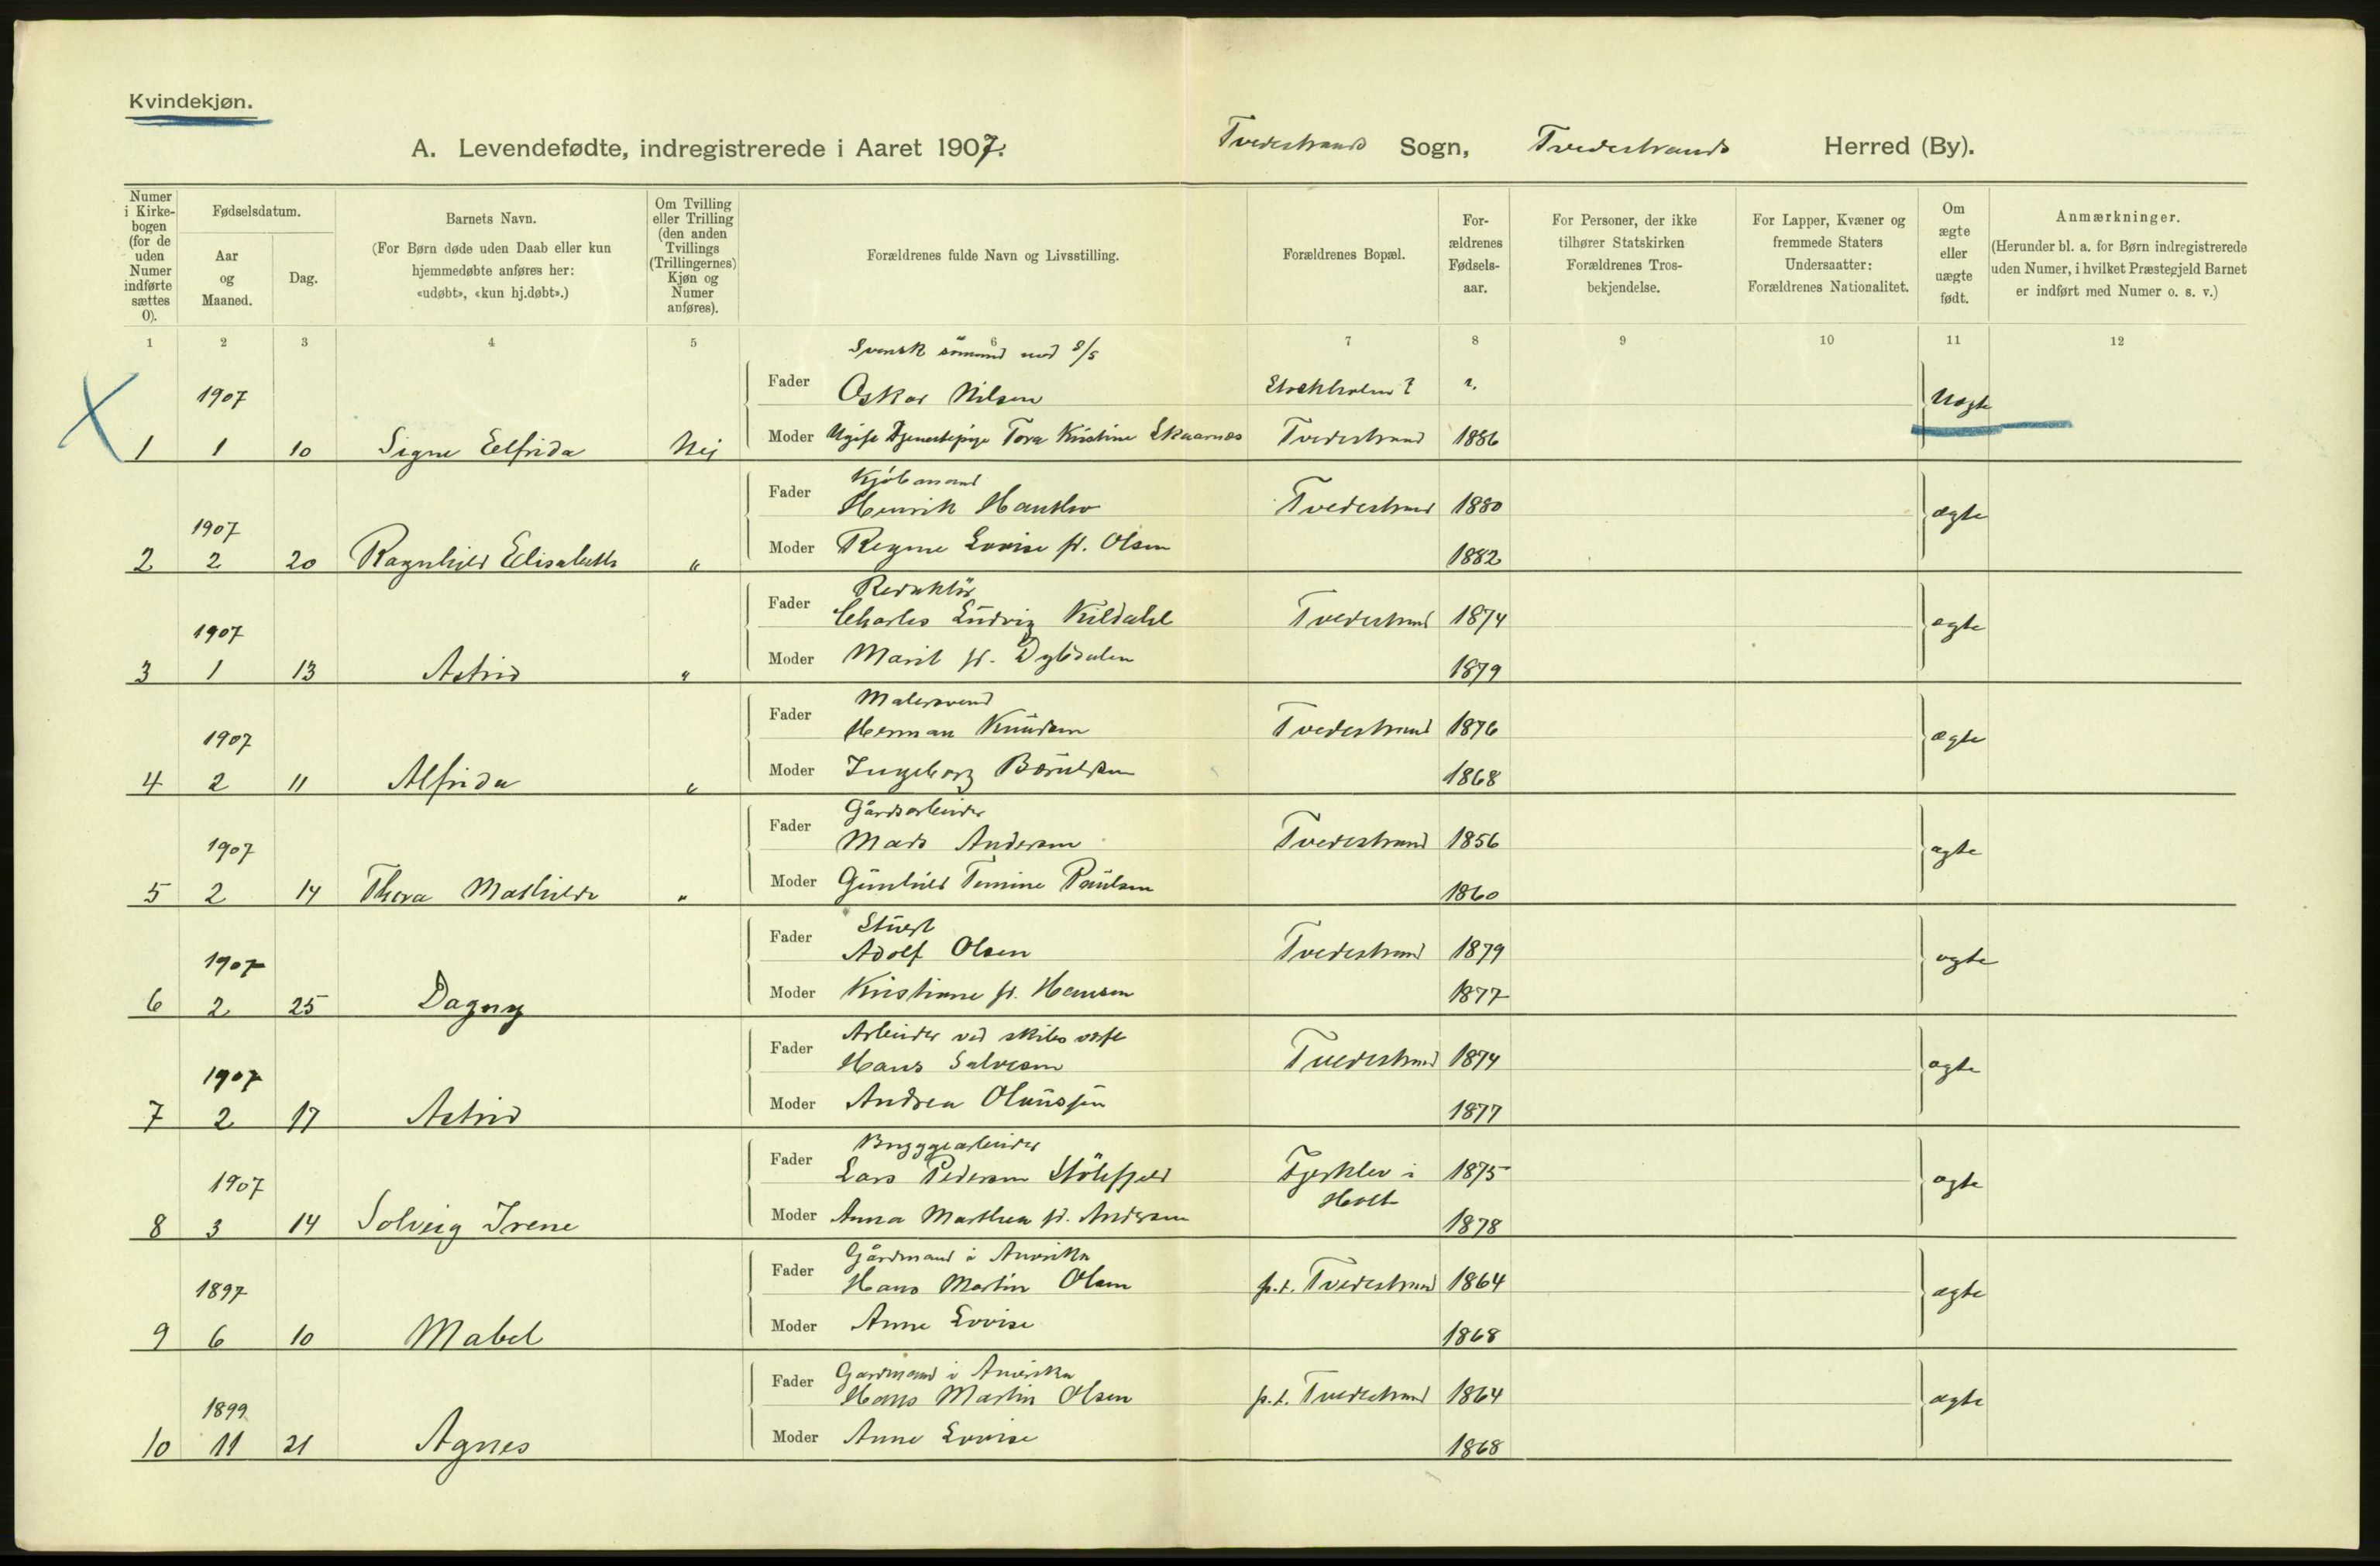 Kvindekjøn.
A. Levendefødte, indregistrerede i Aaret 1907. Tvedestrands Sogn, Tvedestrands Herred (By).
Numer i Kirkebogen (for de uden Numer indførte sættes 0).
Fødselsdatum.
Aar og Maaned.
Dag.
Barnets Navn.
(For Børn døde uden Daab eller kun hjemmedøbte anføres her: «udøbt», «kun hj.døbt».)
Om Tvilling eller Trilling (den anden Tvillings (Trillingernes) Kjøn og Numer anføres).
Forældrenes fulde Navn og Livsstilling.
Forældrenes Bopæl.
Forældrenes Fødselsaar.
For Personer, der ikke tilhører Statskirken Forældrenes Trosbekjendelse.
For Lapper, Kvæner og fremmede Staters Undersaatter: Forældrenes Nationalitet.
Om ægte eller uægte født.
Anmærkninger.
(Herunder bl. a. for Børn indregistrerede uden Numer, i hvilket Præstegjeld Barnet er indført med Numer o. s. v.)
1 2 3 4 5 6 7 8 9 10 11 12
Svensk sömand 8/5
1907 Fader Oskar Nilsen Stockholm? ?. Uægte
1 1 10 Signe Elfrida Nej Moder Ugift Tjenestepige Tora Kristine Skaarnæs Tvedestrand 1886
Kjöbmand
1907 Fader Henrik Tvedestrand 1880 ægte
2 2 20 Ragnhild Elisabeth " Moder Regine Lovise f. Olsen 1882
Redaktör
1907 Fader Charles Ludvig Kildahl Tvedestrand 1874 ægte
3 1 13 Astrid " Moder Marit f. 1879
Malersvend
1907 Fader Herman Knudsen Tvedestrand 1876 ægte
4 2 11 Alfrida " Moder Ingeborg 1868
Gårdsarbeider
1907 Fader Mads Andersen Tvedestrand 1856 ægte
5 2 14 Thora Mathilde " Moder Gunhild Tomine Paulsen 1860
Stuert
1907 Fader Adolf Olsen Tvedestrand 1879 ægte
6 2 25 Dagny Moder Kristiane f. Hansen 1877
Arbeider ved skibsværft
1907 Fader Hans Salvesen Tvedestrand 1874 ægte
7 2 17 Astrid Moder Andrea 1877
Bryggearbeider
1907 Fader Lars Pedersen Fjerklev i Holt 1875 ægte
8 3 14 Solveig Irene Moder Anna Marthea f. Andersen 1878
Gårdmand i Amerika
1897 Fader Hans Martin Olsen p.t. Tvedestrand 1864 ægte
9 6 10 Mabel Moder Anne Lovise 1868
Gårdmand i Amerika
1899 Fader Hans Martin Olsen p.t. Tvedestrand 1864 ægte
10 11 21 Agnes Moder Anne Lovise 1868